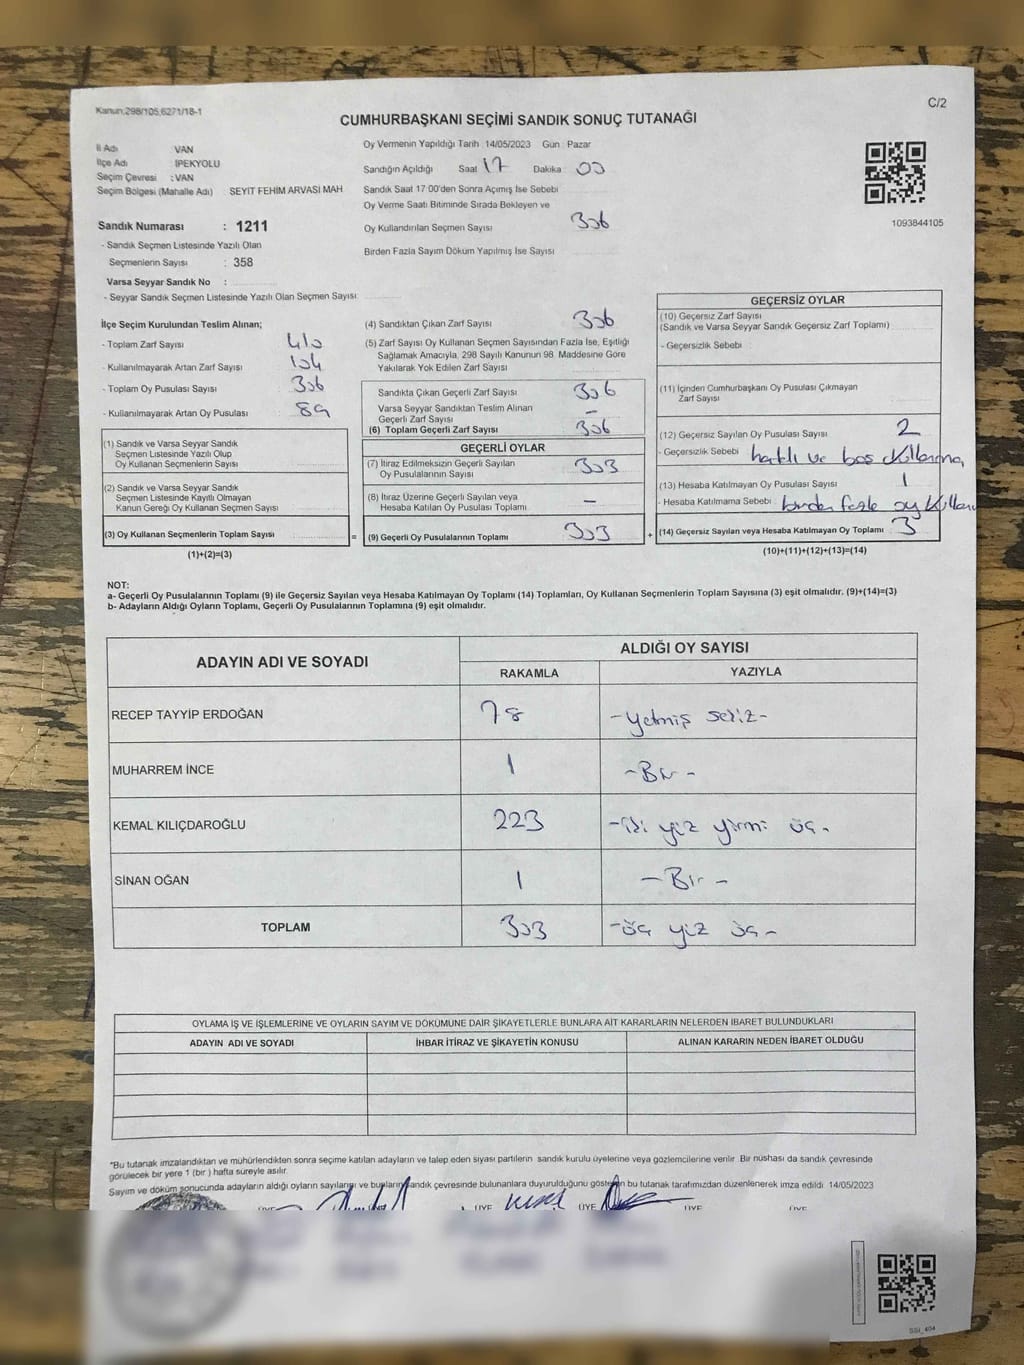 Kanun:298/105,6271/18-1
C/2
CUMHURBAŞKANI SEÇİMİ SANDIK SONUÇ TUTANAĞI
İl Adı VAN
İlçe Adı İPEKYOLU
Seçim Çevresi : VAN
Seçim Bölgesi (Mahalle Adı) SEYİT FEHİM ARVASI MAH
Oy Vermenin Yapıldığı Tarih 14/05/2023 Gün : Pazar
Sandığın Açıldığı Saat 17 Dakika : 00
Sandık Saat 17:00'den Sonra Açımış İse Sebebi
Oy Verme Saati Bitiminde Sırada Bekleyen ve
Oy Kullandırılan Seçmen Sayısı 306
Birden Fazla Sayım Döküm Yapılmış İse Sayısı
1093844105
Sandık Numarası : 1211
- Sandık Seçmen Listesinde Yazılı Olan
Seçmenlerin Sayısı : 358
Varsa Seyyar Sandık No :
- Seyyar Sandık Seçmen Listesinde Yazılı Olan Seçmen Sayısı
İlçe Seçim Kurulundan Teslim Alınan;
- Toplam Zarf Sayısı 410
- Kullanılmayarak Artan Zarf Sayısı 104
- Toplam Oy Pusulası Sayısı 306
- Kullanılmayarak Artan Oy Pusulası 89
(1) Sandık ve Varsa Seyyar Sandık
Seçmen Listesinde Yazılı Olup
Oy Kullanan Seçmenlerin Sayısı
(2) Sandık ve Varsa Seyyar Sandık
Seçmen Listesinde Kayıtlı Olmayan
Kanun Gereği Oy Kullanan Seçmen Sayısı
(3) Oy Kullanan Seçmenlerin Toplam Sayısı
(1)+(2)=(3)
=
(4) Sandıktan Çıkan Zarf Sayısı 306
(5) Zarf Sayısı Oy Kullanan Seçmen Sayısından Fazla İse, Eşitliği
Sağlamak Amacıyla, 298 Sayılı Kanunun 98. Maddesine Göre
Yakılarak Yok Edilen Zarf Sayısı
Sandıkta Çıkan Geçerli Zarf Sayısı 306
Varsa Seyyar Sandıktan Teslim Alınan
Geçerli Zarf Sayısı -
(6) Toplam Geçerli Zarf Sayısı 306
GEÇERLİ OYLAR
(7) İtiraz Edilmeksizin Geçerli Sayılan
Oy Pusulalarının Sayısı 303
(8) İtiraz Üzerine Geçerli Sayılan veya
Hesaba Katılan Oy Pusulası Toplamı -
(9) Geçerli Oy Pusulalarının Toplamı 303
+
GEÇERSİZ OYLAR
(10) Geçersiz Zarf Sayısı
(Sandık ve Varsa Seyyar Sandık Geçersiz Zarf Toplamı)
- Geçersizlik Sebebi :
(11) İçinden Cumhurbaşkanı Oy Pusulası Çıkmayan
Zarf Sayısı
(12) Geçersiz Sayılan Oy Pusulası Sayısı 2
- Geçersizlik Sebebi hatalı ve boş kullanma
(13) Hesaba Katılmayan Oy Pusulası Sayısı 1
- Hesaba Katılmama Sebebi : birden fazla oy
(14) Geçersiz Sayılan veya Hesaba Katılmayan Oy Toplamı 3
(10)+(11)+(12)+(13)=(14)
NOT:
a- Geçerli Oy Pusulalarının Toplamı (9) ile Geçersiz Sayılan veya Hesaba Katılmayan Oy Toplamı (14) Toplamları, Oy Kullanan Seçmenlerin Toplam Sayısına (3) eşit olmalıdır. (9)+(14)=(3)
b- Adayların Aldığı Oyların Toplamı, Geçerli Oy Pusulalarının Toplamına (9) eşit olmalıdır.
ADAYIN ADI VE SOYADI
ALDIĞI OY SAYISI
RAKAMLA YAZIYLA
RECEP TAYYİP ERDOĞAN 78 -yetmiş sekiz-
MUHARREM İNCE 1 -Bir-
KEMAL KILIÇDAROĞLU 223 -iki yüz yirmi üç-
SİNAN OĞAN 1 -Bir-
TOPLAM 303 -üç yüz üç-
OYLAMA İŞ VE İŞLEMLERİNE VE OYLARIN SAYIM VE DÖKÜMÜNE DAİR ŞİKAYETLERLE BUNLARA AİT KARARLARIN NELERDEN İBARET BULUNDUKLARI
ADAYIN ADI VE SOYADI İHBAR İTİRAZ VE ŞİKAYETİN KONUSU ALINAN KARARIN NEDEN İBARET OLDUĞU
*Bu tutanak imzalandıktan ve mühürlendikten sonra seçime katılan adayların ve talep eden siyasi partilerin sandık kurulu üyelerine veya gözlemcilerine verilir. Bir nüshası da sandık çevresinde
görülecek bir yere 1 (bir ) hafta süreyle asılır.
Sayım ve döküm sonucunda adayların aldığı oyların sayılarını ve bunların sandık çevresinde bulunanlara duyurulduğunu gösteren bu tutanak tarafımızdan düzenlenerek imza edildi. 14/05/2023
ÜYE ÜYE ÜYE ÜYE ÜYE
SSİ_404